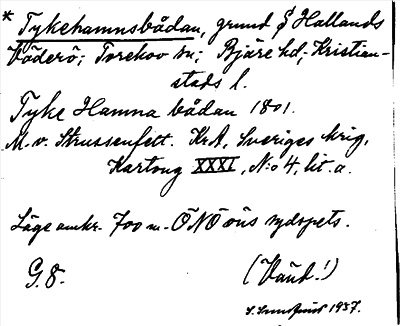 * Tykehamnsbådan, grund S Hallands
Väderö; Torekov sn; Bjäre hd; Kristian-
stads l.
Tyke Hamna bådan 1801.
M. v. Strussenfelt. KrA, Sveriges krig,
Kartong XXXI, N:o 4, lit. a.
Läge omkr. 700 m. ÖNÖ öns sydspets.
G. 8.
(Vänd!)
S. 1937.